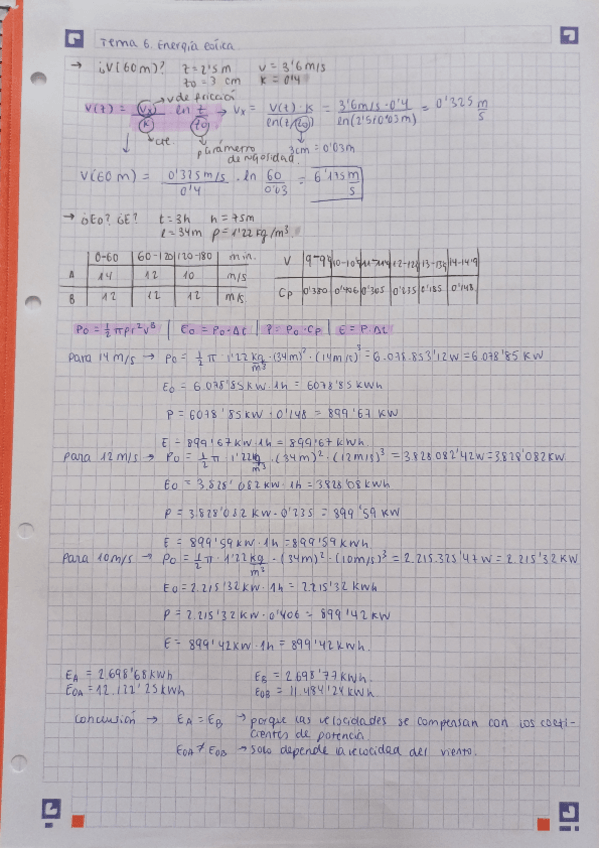 Tema 6. Energía eólica.
→ ¿V(60m)? z = 2'5m v = 3'6 m/s
z0 = 3 cm k = 0'4
→ v de fricción
V(z) = Vx/k · ln z/z0 → Vx = V(z)·k / ln(z/z0) = 3'6m/s·0'4 / ln(2'5/0'03m) = 0'325 m/s
cte. parámetro de rugosidad 3cm = 0'03m
V(60m) = 0'325 m/s / 0'4 · ln 60/0'03 = 6'175 m/s
→ ¿E0? ¿E? t = 3h h = 75m
r = 34m ρ = 1'22 kg/m³
0-60 60-120 120-180 min.
A 14 12 10 m/s
B 12 12 12 m/s
V 9-9'9 10-10'9 11-11'9 12-12'9 13-13'9 14-14'9
Cp 0'380 0'406 0'305 0'235 0'185 0'148
P0 = 1/2 πρr²v³ | E0 = P0·Δt | P = P0·Cp | E = P·Δt
Para 14 m/s → P0 = 1/2 π · 1'22 kg/m³ · (34m)² · (14m/s)³ = 6.078.853'12W = 6.078'85 KW
E0 = 6.078'85KW · 1h = 6078'85 KWh
P = 6078'85KW · 0'148 = 899'67 KW
E = 899'67 KW · 1h = 899'67 KWh.
Para 12 m/s → P0 = 1/2 π · 1'22 kg/m³ · (34m)² · (12m/s)³ = 3828 082'42W = 3.828'082KW
E0 = 3.828'082 KW · 1h = 3828'08 KWh
P = 3.828'082 KW · 0'235 = 899'59 KW
E = 899'59 KW · 1h = 899'59 KWh
Para 10m/s → P0 = 1/2 π · 1'22 kg/m³ · (34m)² · (10m/s)³ = 2.215.325'47W = 2.215'32 KW
E0 = 2.215'32 KW · 1h = 2.215'32 KWh
P = 2.215'32 KW · 0'406 = 899'42 KW
E = 899'42 KW · 1h = 899'42 KWh.
EA = 2.698'68 KWh EB = 2.698'77 KWh.
E0A = 12.122'25 KWh E0B = 11.484'24 KWh
Conclusión → EA = EB → porque las velocidades se compensan con los coefi-
cientes de potencia.
E0A ≠ E0B → solo depende la velocidad del viento.